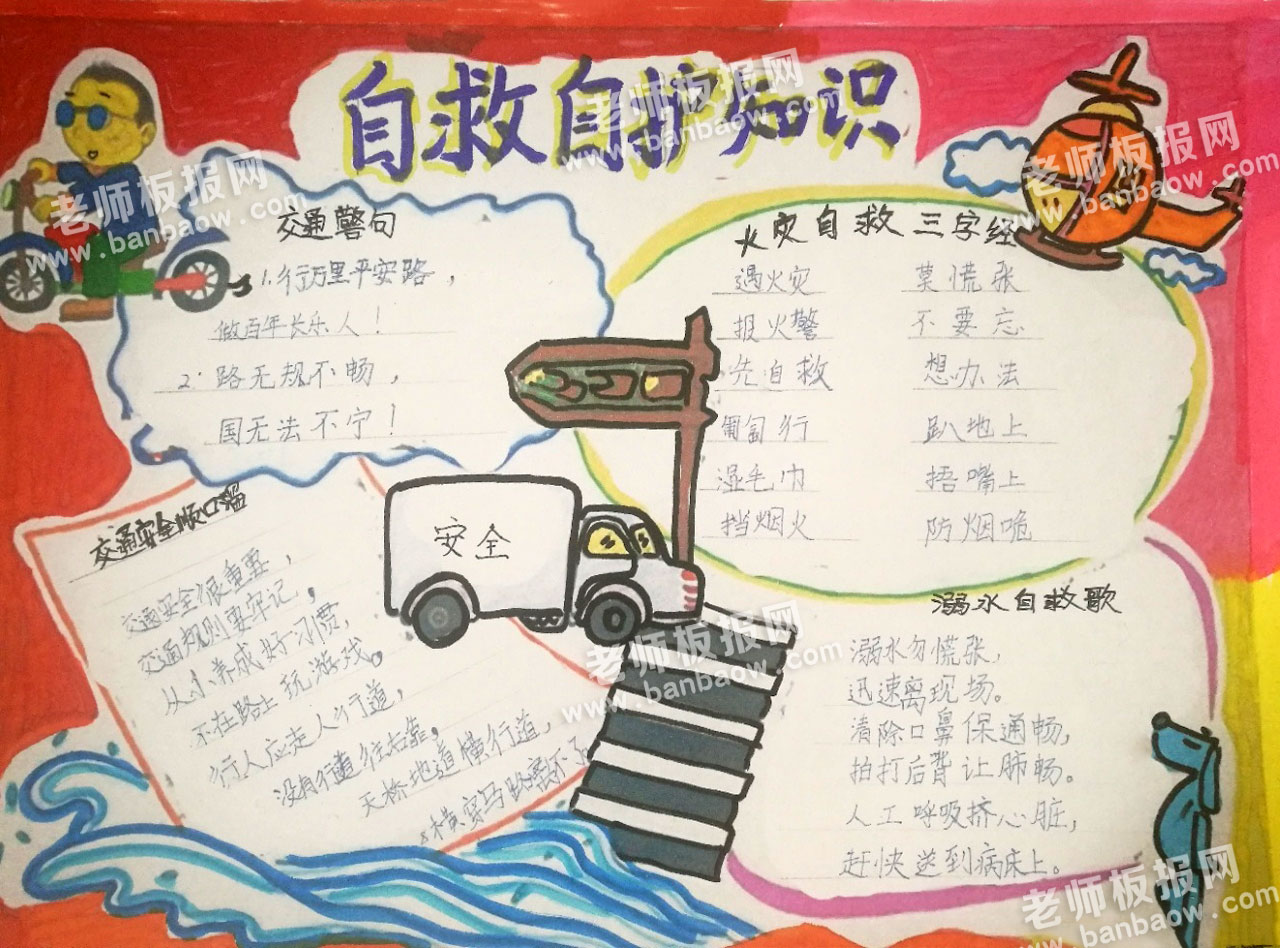 自救自护知识
交通警句
1.行万里平安路，
做百年长乐人！
2.路无规不畅，
国无法不宁！
火灾自救三字经
遇火灾 莫慌张
报火警 不要忘
先自救 想办法
匍匐行 趴地上
湿毛巾 捂嘴上
挡烟火 防烟呛
安全
交通安全顺口溜
交通安全很重要，
交通规则要牢记。
从小养成好习惯，
不在路上玩游戏。
行人应走人行道，
没有行道往右靠。
天桥地道横行道，
横穿马路
溺水自救歌
溺水勿慌张，
迅速离现场。
清除口鼻保通畅，
拍打后背让肺畅。
人工呼吸挤心脏，
赶快送到病床上。
老师板报网
www.banbaow.com
老师板报网
www.banbaow.com
老师板报网
www.banbaow.com
老师板报网
www.banbaow.com
老师板报网
www.banbaow.com